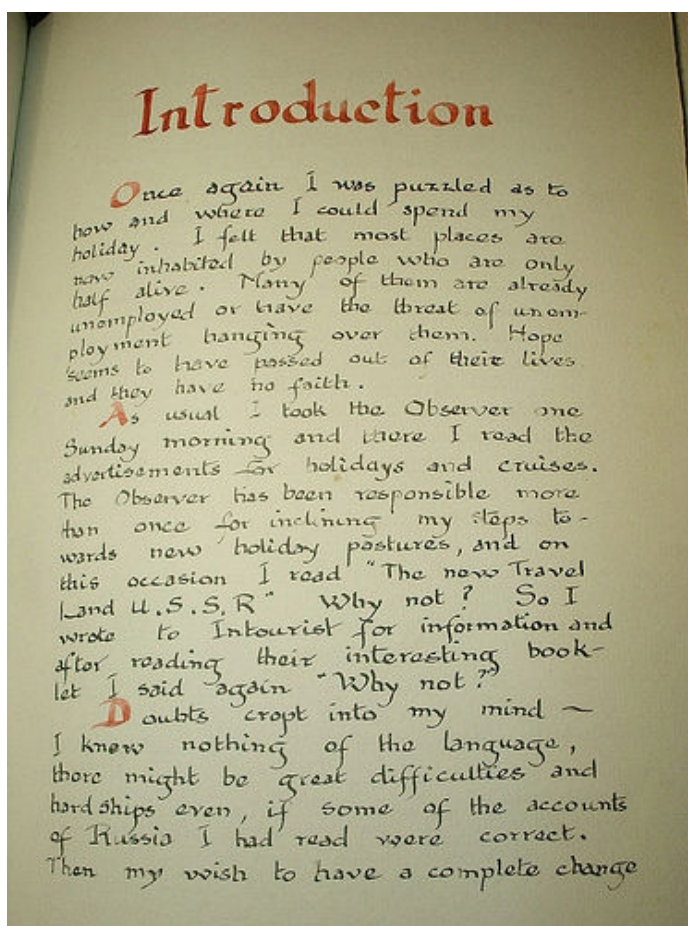 Introduction
Once again I was puzzled as to
how and where I could spend my
holiday. I felt that most places are
now inhabited by people who are only
half alive. Many of them are already
unemployed or have the threat of unem-
ployment hanging over them. Hope
seems to have passed out of their lives
and they have no faith.
As usual I took the Observer one
Sunday morning and there I read the
advertisements for holidays and cruises.
The Observer has been responsible more
than once for inclining my steps to-
wards new holiday pastures, and on
this occasion I read "The new Travel
Land U.S.S.R" Why not? So I
wrote to Intourist for information and
after reading their interesting book-
let I said again "Why not?"
Doubts cropt into my mind ~
I knew nothing of the language,
there might be great difficulties and
hardships even, if some of the accounts
of Russia I had read were correct.
Then my wish to have a complete change